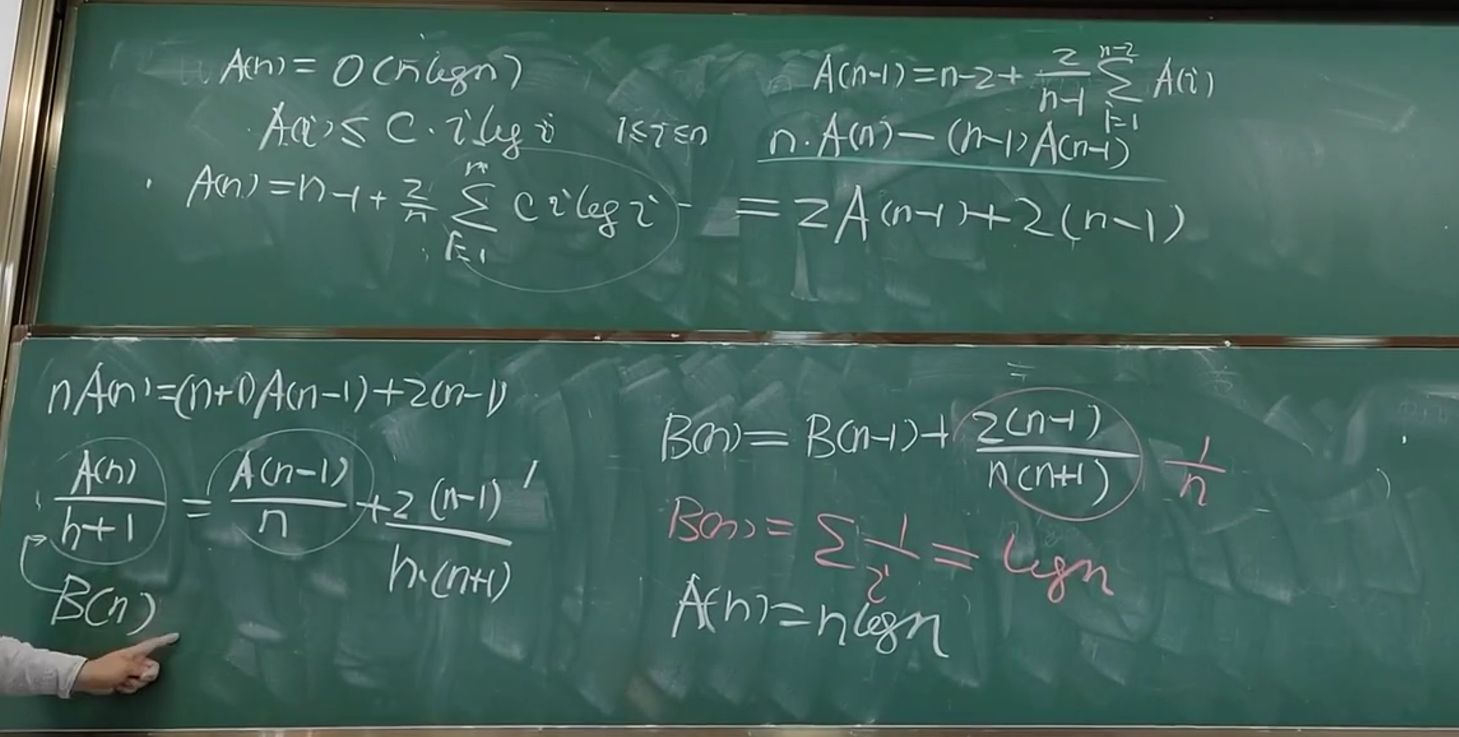 A(n) = O(n log n)
A(i) ≤ C · i log i 1≤i≤n
A(n) = n-1 + 2/n ∑_{i=1} C i log i
A(n-1) = n-2 + 2/(n-1) ∑_{i=1}^{n-2} A(i)
n · A(n) - (n-1) A(n-1)
= 2A(n-1) + 2(n-1)
nA(n) = (n+1)A(n-1) + 2(n-1)
A(n)/(n+1) = A(n-1)/n + 2(n-1)/(n·(n+1))
B(n)
B(n) = B(n-1) + 2(n-1)/(n(n+1)) 1/n
B(n) = ∑ 1/i = log n
A(n) = n log n